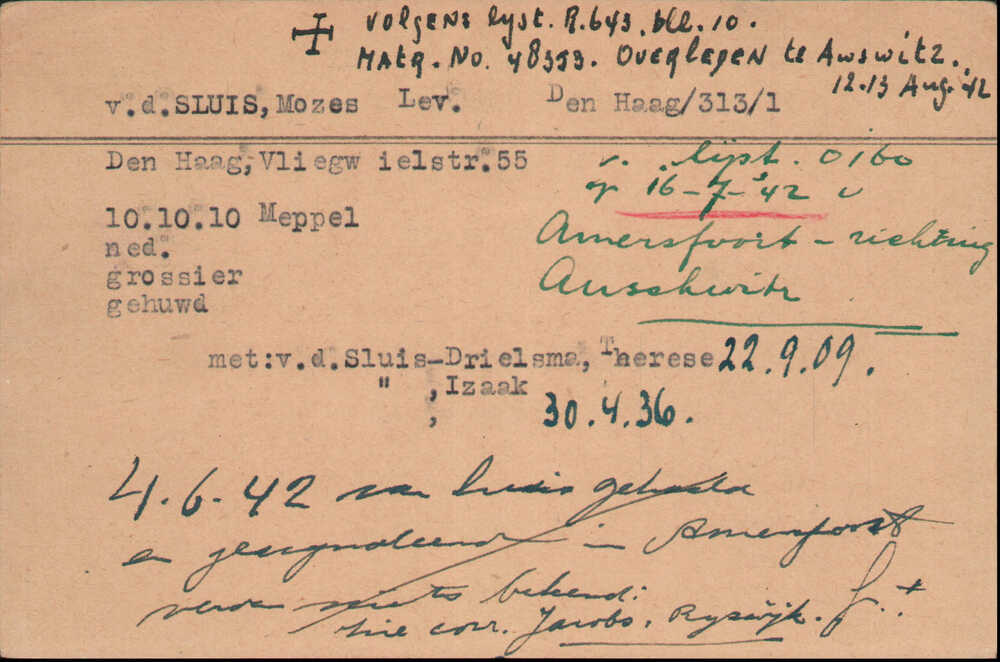 volgens lyst. R.643. bl. 10.
Matr. No. 48353. Overleden te Auswitz.
12.13 Aug. 42
v.d.SLUIS, Mozes Lev. Den Haag/313/1
Den Haag, Vliegw ielstr.55
v. lijst. 0160
op 16-7-'42 v
10.10.10 Meppel
Amersfoort - richting
ned.
grossier
Auschwitz
gehuwd
met:v.d.Sluis-Drielsma, Therese 22.9.09.
" ,Izaak
, 30.4.36.
4.6.42 van huis gehaald
en gesignaleerd in Amersfoort
verder niets bekend:
zie corr. Jacobs, Ryswijk.